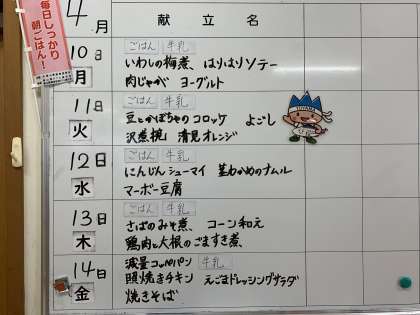 毎日しっかり
朝ごはん!
4月
献立名
10日
月
ごはん 牛乳
いわしの梅煮、はりはりソテー
肉じゃが ヨーグルト
11日
火
ごはん 牛乳
豆とかぼちゃのコロッケ よごし
沢煮椀 清見オレンジ
12日
水
ごはん 牛乳
にんじんシューマイ 茎わかめのナムル
マーボー豆腐
13日
木
ごはん 牛乳
さばのみそ煮、コーン和え
鶏肉と大根のごますき煮、
14日
金
減量コッペパン 牛乳
照焼きチキン えごまドレッシングサラダ
焼きそば